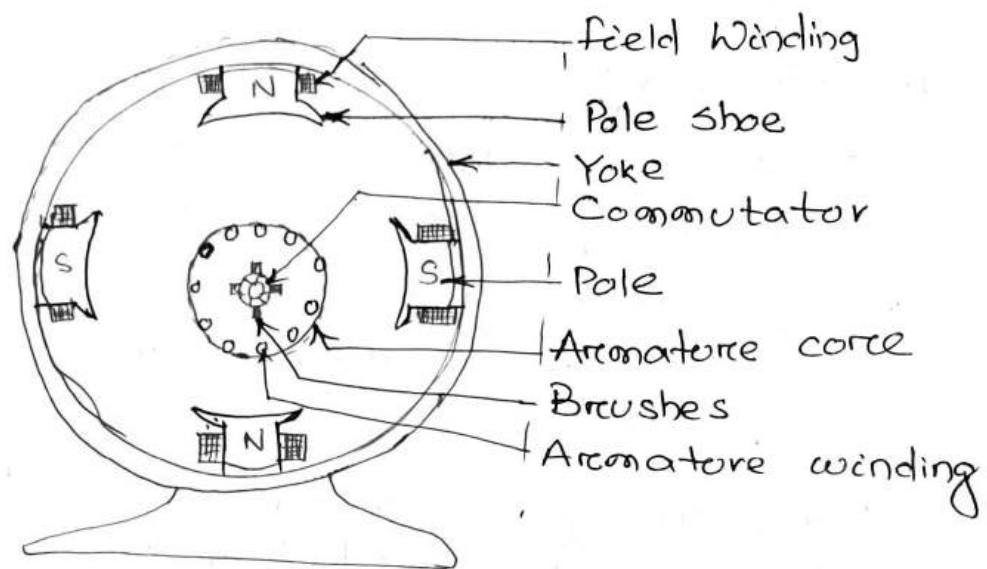 N
S
S
N
field Winding
Pole shoe
Yoke
Commutator
Pole
Armature core
Brushes
Armature winding